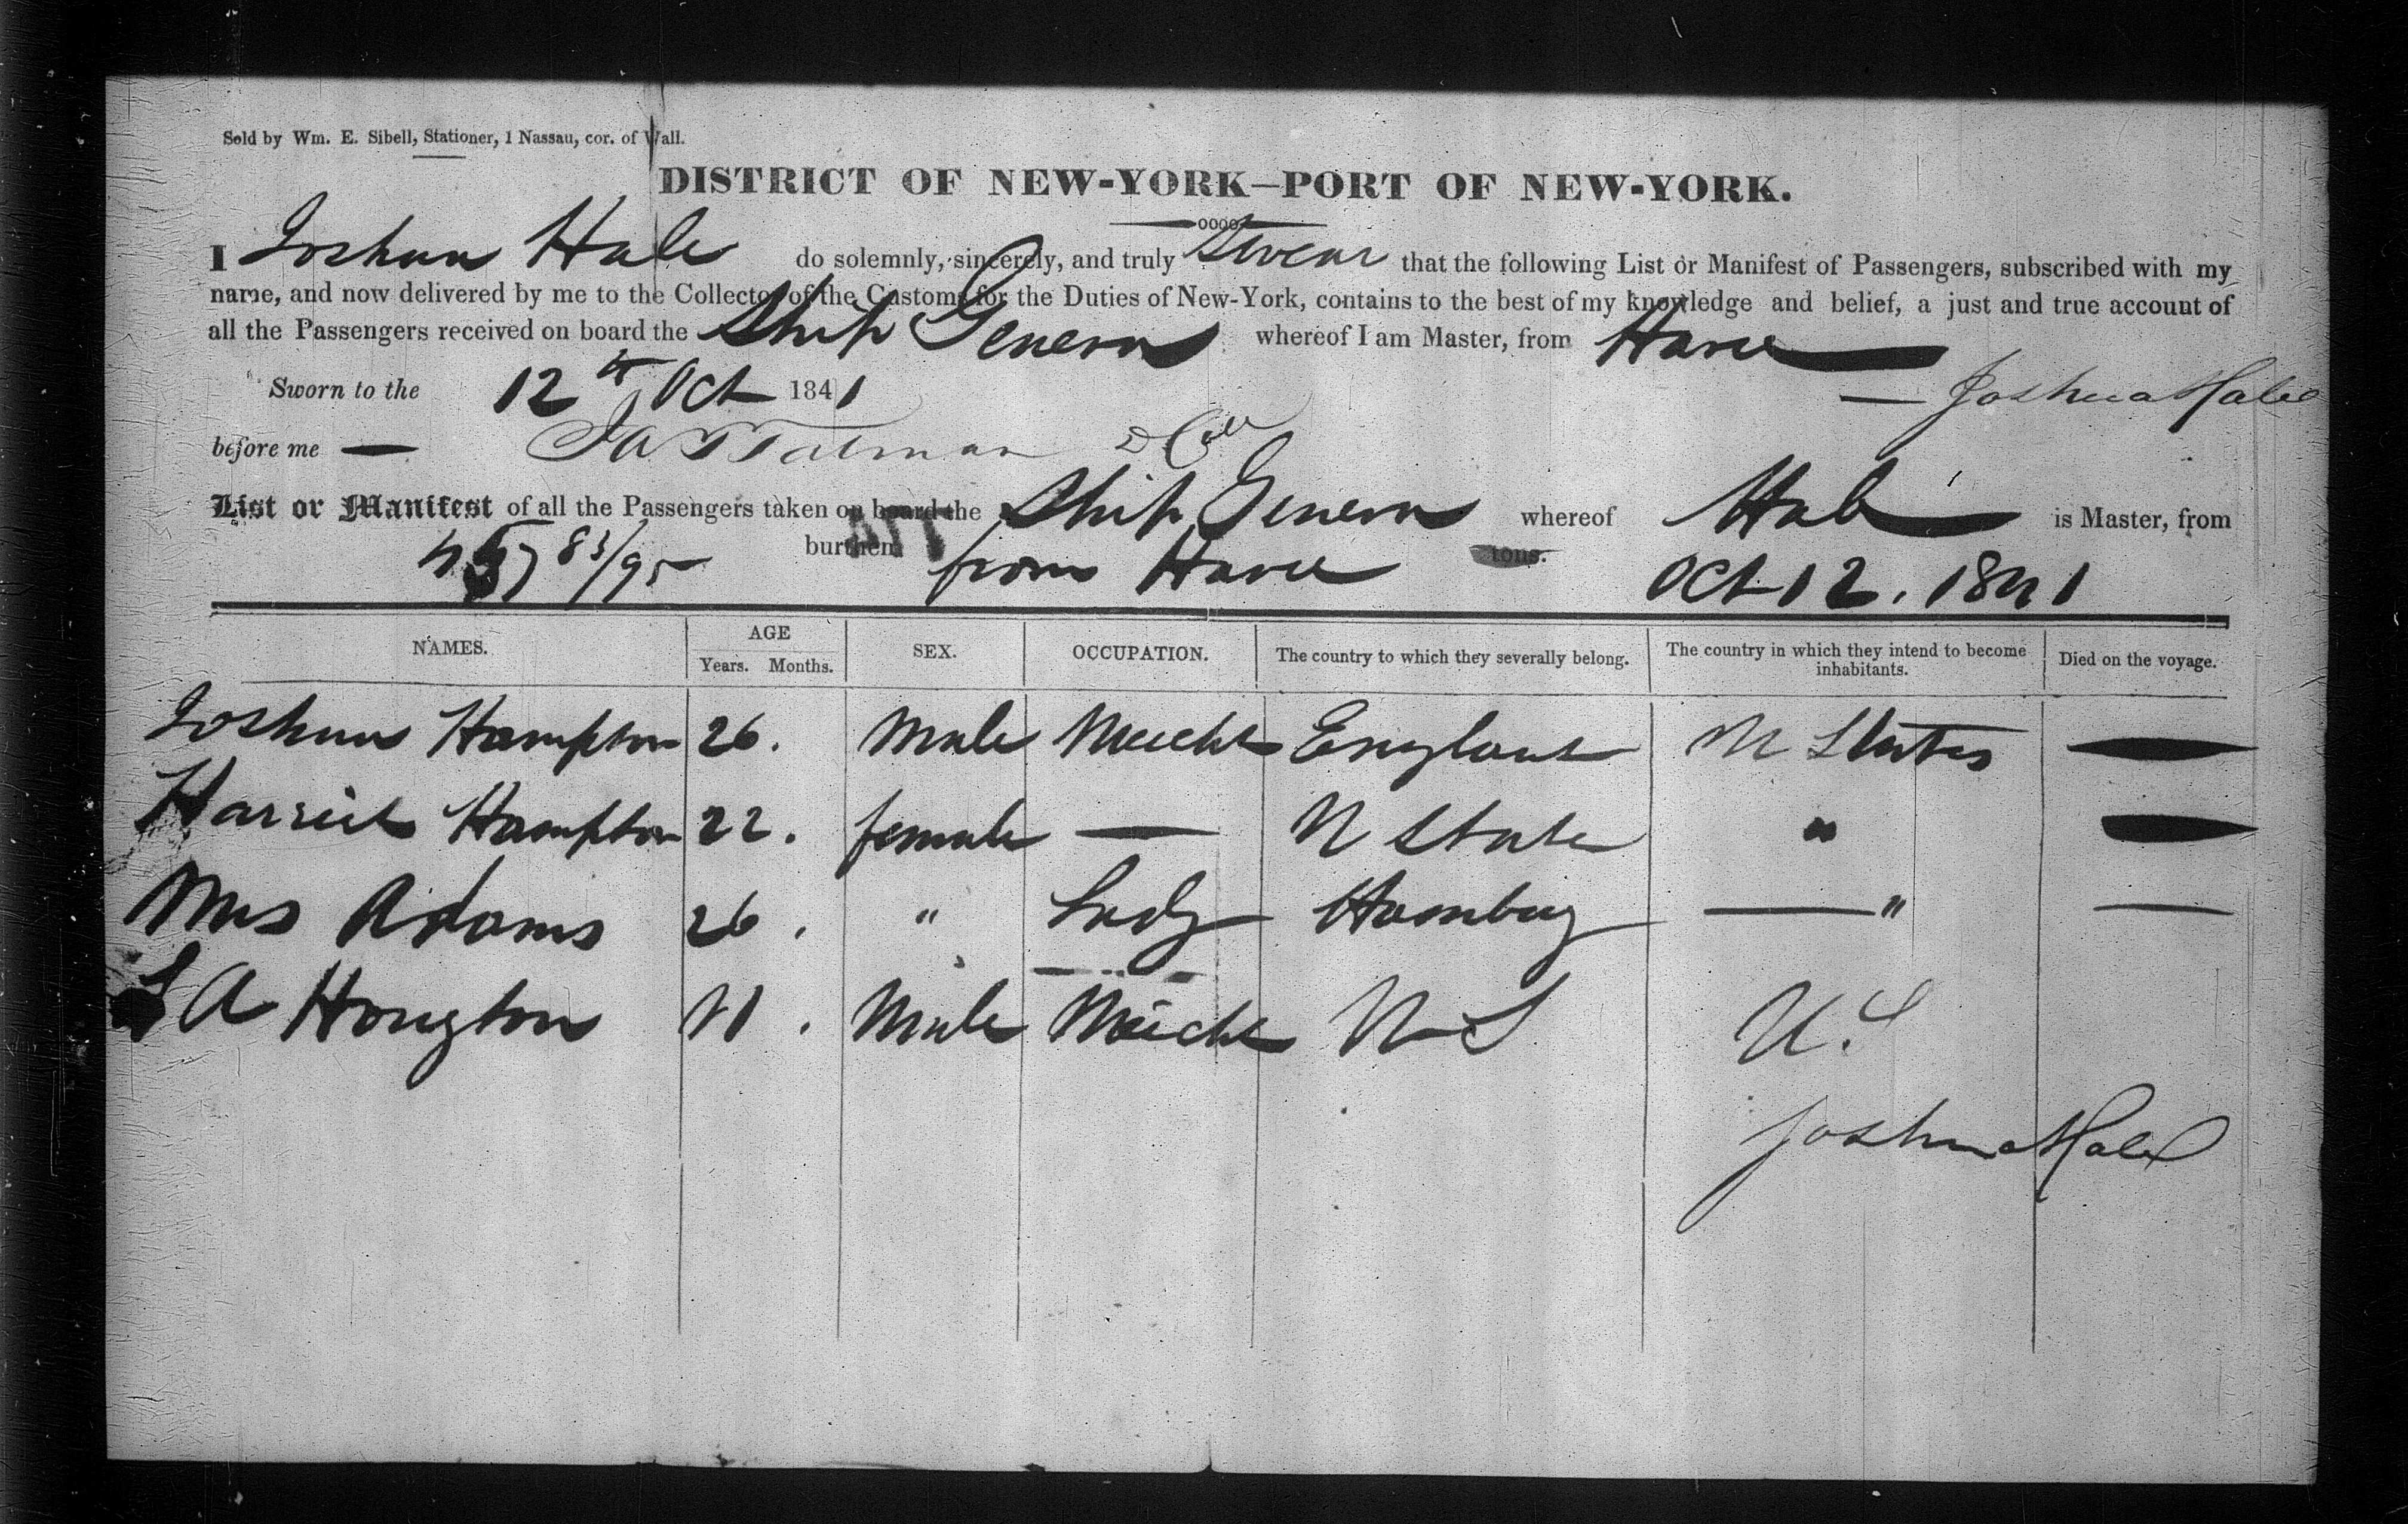 Sold by Wm. E. Sibell, Stationer, 1 Nassau, cor. of Wall.
DISTRICT OF NEW-YORK—PORT OF NEW-YORK.
I Joshua Hale do solemnly, sincerely, and truly Swear that the following List or Manifest of Passengers, subscribed with my
name, and now delivered by me to the Collector of the Customs for the Duties of New-York, contains to the best of my knowledge and belief, a just and true account of
all the Passengers received on board the Ship Geneva whereof I am Master, from Havre
Sworn to the 12th Oct 1841 — Joshua Hale
before me — Tatman
List or Manifest of all the Passengers taken on board the Ship Geneva whereof Hale is Master, from
burthen 83/95 from Havre tons. Oct 12. 1841
NAMES. AGE Years. Months. SEX. OCCUPATION. The country to which they severally belong. The country in which they intend to become inhabitants. Died on the voyage.
Joshua Hampton 26. Male Mercht England U States —
Harriet Hampton 22. female — U State " —
Mrs Adams 26. " Lady Hamburg — " —
A Hougton 41. Male Mercht U S U.S
Joshua Hale